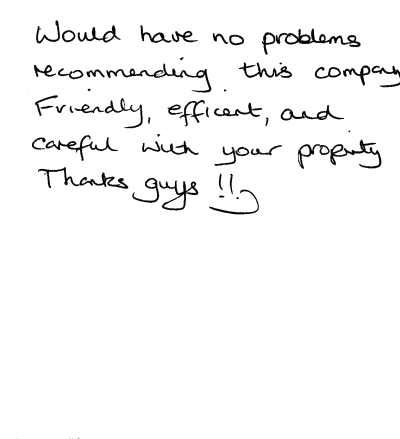 Would have no problems
recommending this company
Friendly, efficent, and
careful with your property
Thanks guys !!